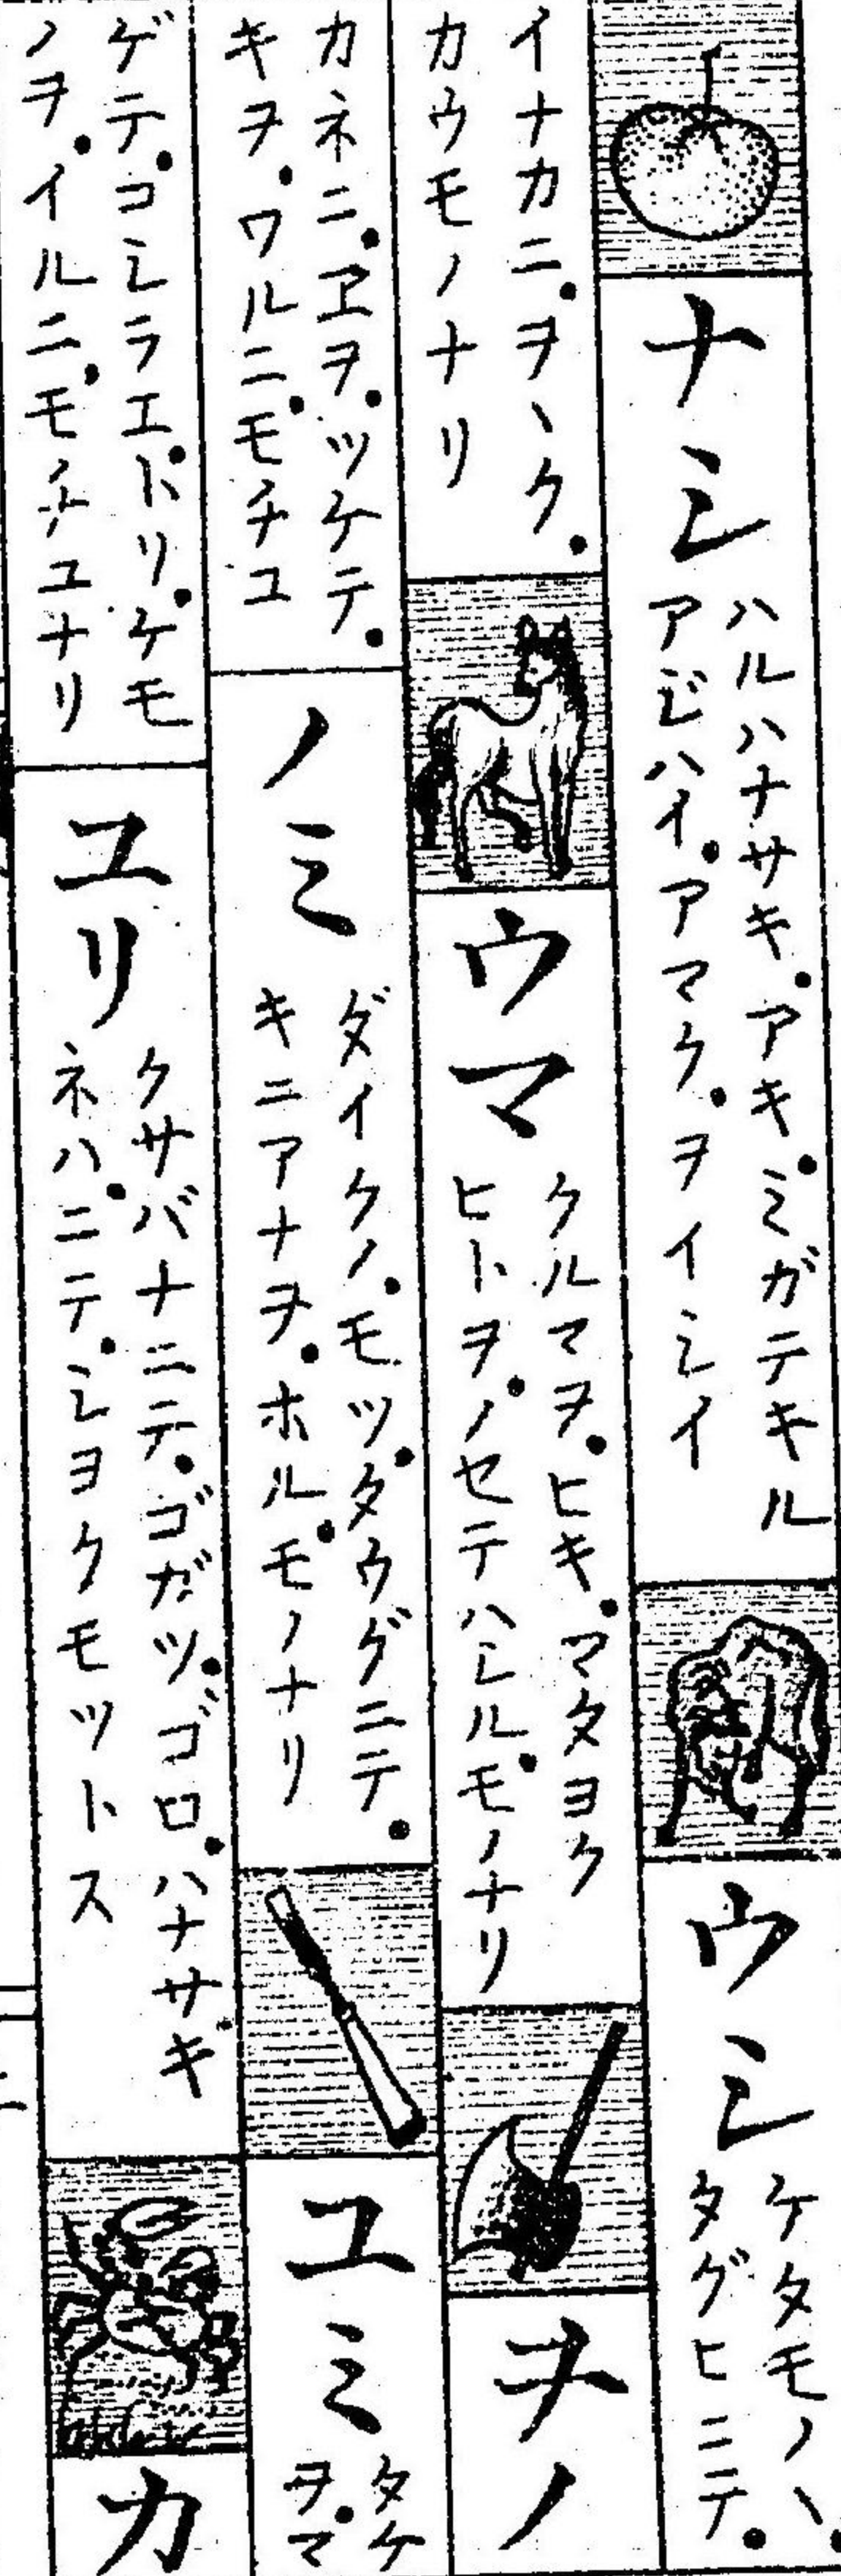 ナシ
ハルハナサキ。アキ。ミガテキル
アジハイ。アマク。ヲイシイ
ウシ
ケタモノハ。
タグヒニテ。
イナカニ。ヲヽク。
カウモノナリ
ウマ
クルマヲ。ヒキ。マタヨク
ヒトヲ。ノセテハシル。モノナリ
ヲノ
カネニ。ヱヲ。ツケテ。
キヲ。ワルニ。モチユ
ノミ
ダイクノ。モツ。タウグニテ。
キニアナヲ。ホル。モノナリ
ユミ
タケ
ヲ。マ
ゲテ。コシラエ。トリ。ケモ
ノヲ。イルニ。モチユナリ
ユリ
クサバナニテ。ゴガツ。ゴロ。ハナサキ
ネハ。ニテ。シヨクモツトス
カ